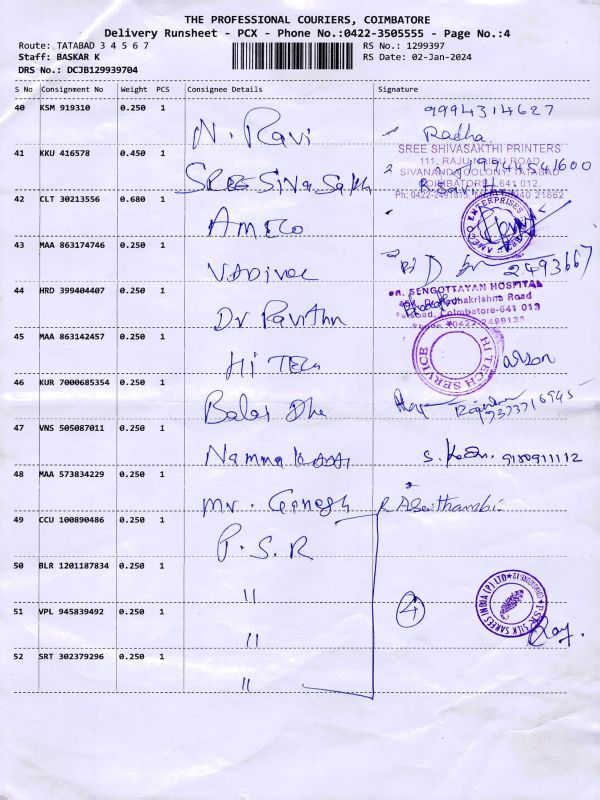 THE PROFESSIONAL COURIERS, COIMBATORE
Delivery Runsheet - PCX - Phone No.:0422-3505555 - Page No.:4
Route: TATABAD 3 4 5 6 7 RS No.: 1299397
Staff: BASKAR K RS Date: 02-Jan-2024
DRS No.: DCJB129939704
S No Consignment No Weight PCS Consignee Details Signature
40 KSM 919310 0.250 1 N. Ravi 9994314627
Radha
41 KKU 416578 0.450 1 SREE SIVA Sakthi
SREE SHIVASAKTHI PRINTERS
COIMBATORE - 641 012.
42 CLT 30213556 0.680 1 AMECO AMECO ENTERPRISES
43 MAA 863174746 0.250 1 VADIVEL 2493667
44 HRD 399404407 0.250 1 Dr Pavithra
SENGOTTAYAN HOSPITAL
Coimbatore-641 012
45 MAA 863142457 0.250 1 Hi TECH HITECH SERVICE
46 KUR 7000685354 0.250 1 Balaj
47 VNS 505087011 0.250 1 Namma 9180911112
48 MAA 573834229 0.250 1 Mr. Ganesh
49 CCU 100890486 0.250 1 P. S. R
50 BLR 1201187834 0.250 1 "
51 VPL 945839492 0.250 1 " 4 PSR SILK SAREES INDIA (P) LTD
52 SRT 302379296 0.250 1 "